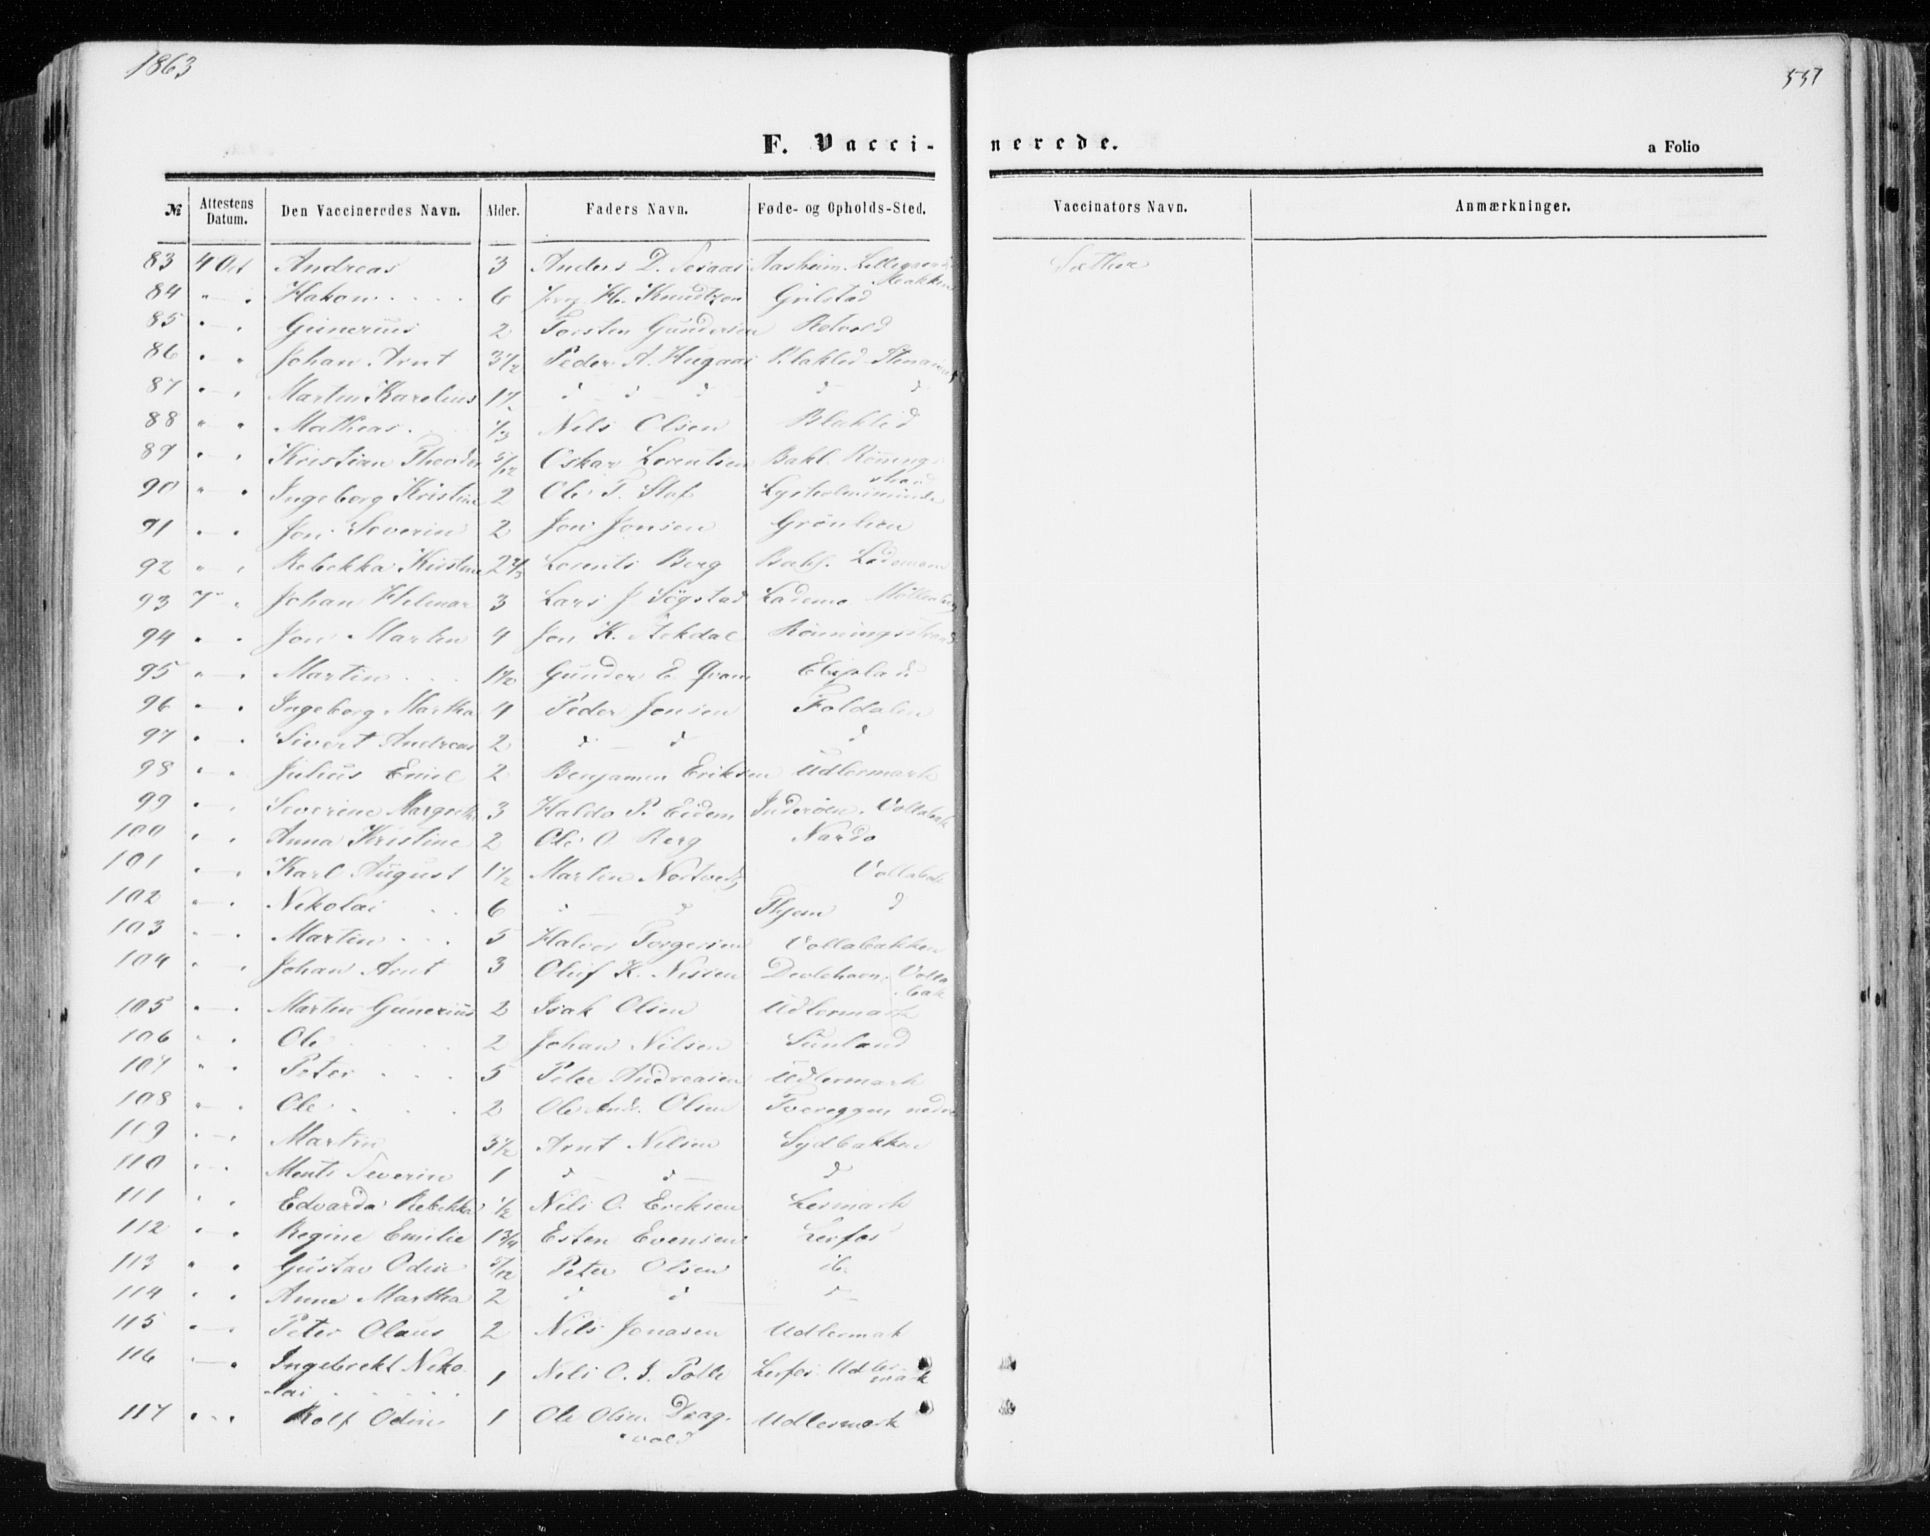 1863
557
F. Vacci-
nerede.
a Folio
№ Attestens Datum. Den Vaccineredes Navn. Alder. Faders Navn. Føde- og Opholds-Sted. Vaccinators Navn. Anmærkninger.
83 4 Oct Andreas 3 Anders D. Aasheim
84 " " Hakon 6 Knudtzon Grilstad
85 " " Gunerius 2 Torsten Gundersen Rotvold
86 " " Johan Arnt 3 1/2 Peder A. Hugaas Blaklid
87 " " Martin Karelius d d d d d
88 " " Mathias 1/3 Nils Olsen Blaklid
89 " " Kristian Theodor 5/12 Oskar Lorentsen Bakl. Rönnings
strand
90 " " Ingeborg Kristine 2 Ole P. Lysholmsminde
91 " " Jon Severin 2 Jon Jonsen Grönlien
92 " " Rebekka Kirstine 2 2/3 Lorents Berg Bakl. Lademoen
93 7 " Johan Helmer 3 Lars J. Sögstad Lademo Möllenberg
94 " " Jon Martin 4 Jon K. Rönningsstrand
95 " " Martin 1 1/2 Gunder E. Qvam
96 " " Ingeborg Martha 4 Peder Jonsen Foldalen
97 " " Sivert Andreas 2 d d d
98 " " Julius Emil 2 Benjamin Eriksen Udlermark
99 " " Severine Margrethe 3 Haldo P. Eidem Inderöen. Vollabak
100 " " Anna Kristine 2 Ole O. Berg Nardo
101 " " Karl August 1 1/2 Martin Vollabak
102 " " Nikolai 6 d d
103 " " Martin 5 Halvor Torgersen Vollabakken
104 " " Johan Arnt 3 Oluf K. Nissen Devlehavn. Volla
bak
105 " " Martin Gunerius 2 Isak Olsen Udlermark
106 " " Ole 2 Johan Nilsen Sunland
107 " " Peter 5 Peter Andreasen Udlermark
108 " " Ole 2 Ole And. Olsen Tvereggen nedre
109 " " Martin 3 1/2 Arnt Nilsen Sydbakken
110 " " Ments Severin 1 d d d
111 " " Edvarda Rebekka 1/2 Nils O. Ericksen Lermark
112 " " Regine Emilie 1 3/4 Esten Evensen Lerfos
113 " " Gustav Odin 5/12 Peter Olsen ib.
114 " " Anne Martha 2 d d d
115 " " Peter Olaus 2 Nils Jonasen Udlermak
116 " " Ingebrekt Niko
lai 1 Nils O. J. Lerfos. Udler-
mark
117 " " Rolf Odin 1 Ole Olsen Drag-
vold Udlermark